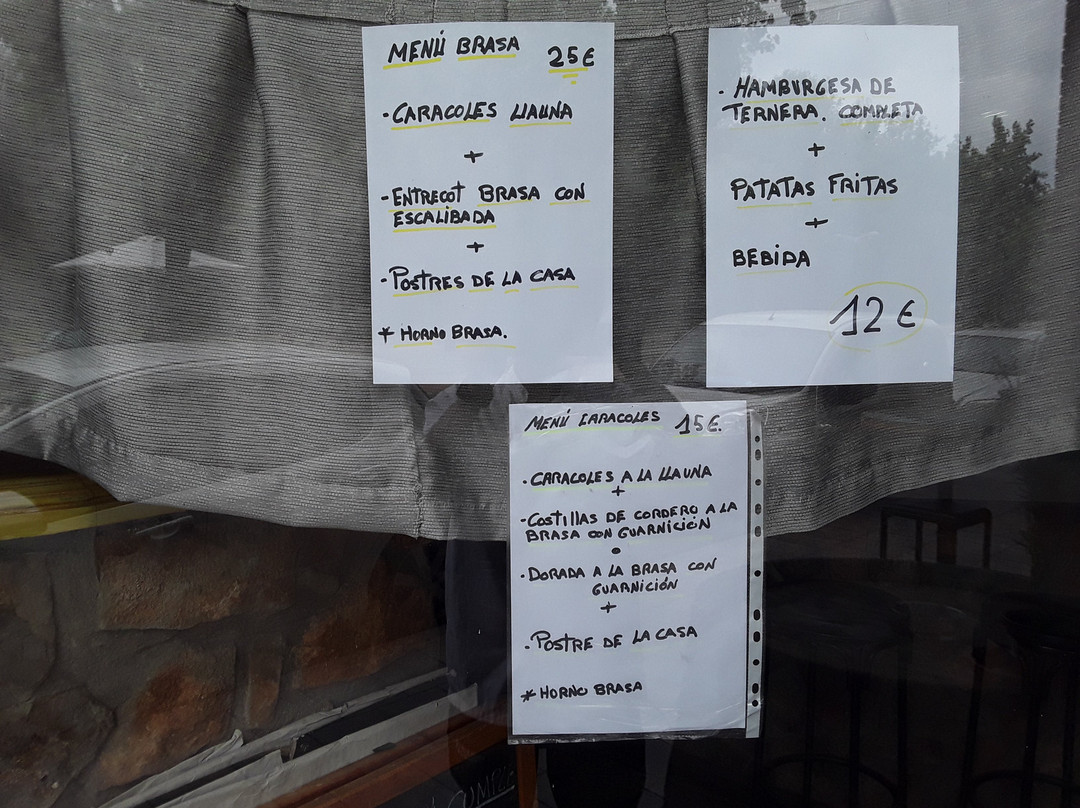 MENÚ BRASA 25€
-CARACOLES LLAUNA
+
-ENTRECOT BRASA CON
ESCALIBADA
+
-POSTRES DE LA CASA
* HORNO BRASA.
. HAMBURGESA DE
TERNERA. COMPLETA
+
PATATAS FRITAS
+
BEBIDA
12€
MENÚ CARACOLES 15€.
. CARACOLES A LA LLAUNA
+
-COSTILLAS DE CORDERO A LA
BRASA CON GUARNICIÓN
o
. DORADA A LA BRASA CON
GUARNICIÓN
+
. POSTRE DE LA CASA
* HORNO BRASA